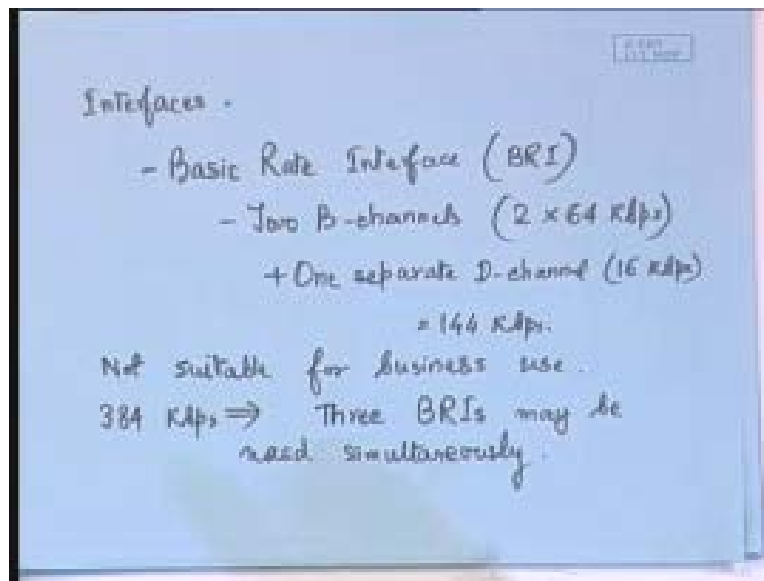 Interfaces.
- Basic Rate Interface (BRI)
- Two B-channels (2 x 64 Kbps)
+ One separate D-channel (16 Kbps)
= 144 Kbps.
Not suitable for business use.
384 Kbps ⇒ Three BRIs may be
used simultaneously.